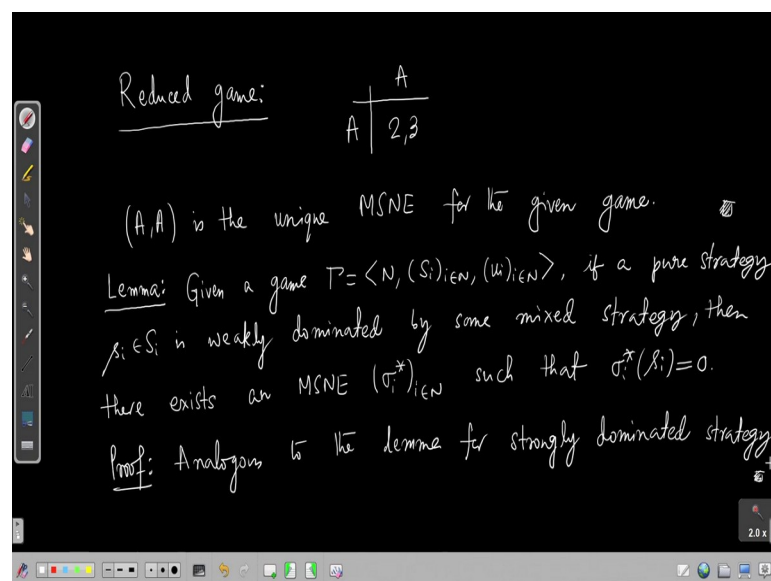 Reduced game:
A
A 2,3
(A,A) is the unique MSNE for the given game.
Lemma: Given a game Γ=<N, (Si)i∈N, (ui)i∈N>, if a pure strategy
si ∈ Si is weakly dominated by some mixed strategy, then
there exists an MSNE (σi*)i∈N such that σi*(si)=0.
Proof: Analogous to the lemma for strongly dominated strategy
2.0 x